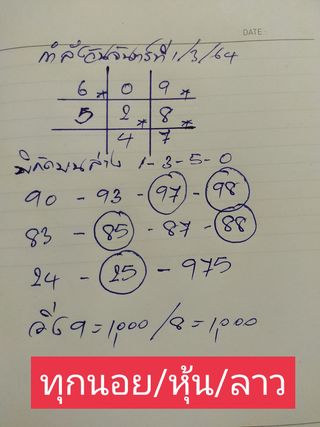 DATE :
วันจันทร์ที่ 1/3/64
6* 0 9*
5 2* 8*
4 7
บนล่าง 1-3-5-0
90 - 93 - 97 - 98
83 - 85 - 87 - 88
24 - 25 - 975
วิ่ง 9 = 1,000 / 8 = 1,000
ทุกนอย/หุ้น/ลาว